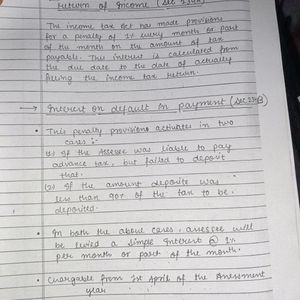 return of Income (Sec 234A)
The income tax act has made provisions
for a penalty of 1% every month or part
of the month on the amount of tax
payable. This interest is calculated from
the due date to the date of actually
filing the income tax return.
→ Interest on default in payment (Sec 234B)
• This penalty provisions activates in two
cases :-
(1) If the Assessee was liable to pay
advance tax, but failed to deposit
that.
(2) If the amount deposite was
less than 90% of the tax to be
deposited.
• In both the about cases, assessee will
be levied a simple Interest @ 1%
per month or part of the month.
• Chargable from 1st April of the Assesment
year